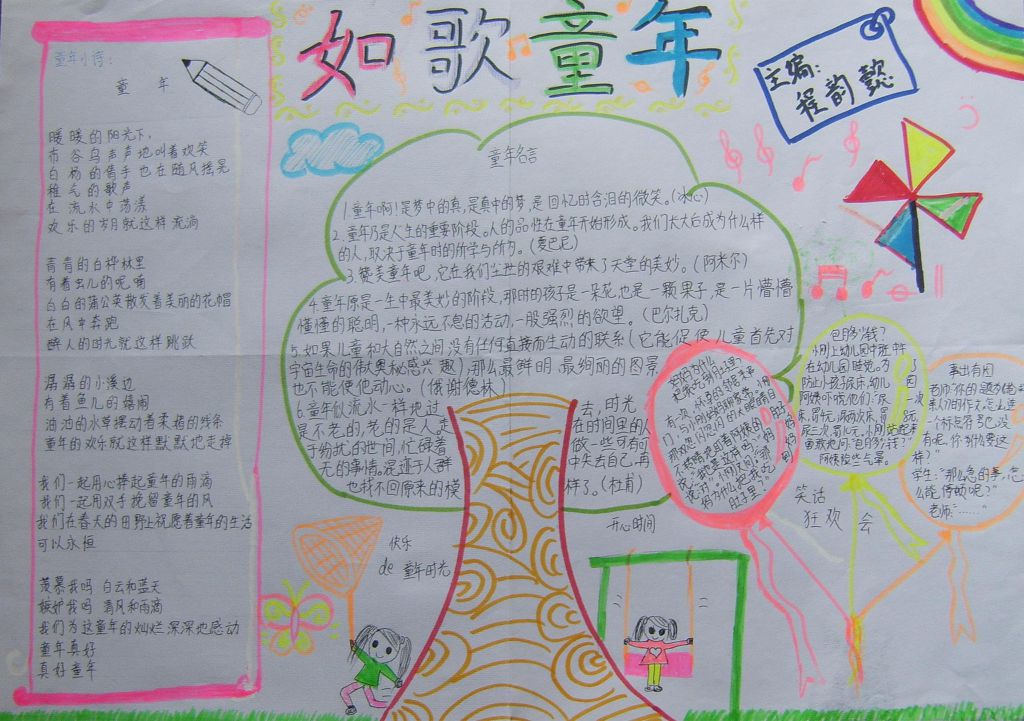 如歌童年
主编：
程韵懿
童年小诗：
童 年
暖暖的阳光下，
布谷鸟声声地叫着欢笑
白杨的情手也在随风摇晃
稚气的歌声
在流水中荡漾
欢乐的岁月就这样流淌
青青的白桦林里
有着虫儿的呢喃
白白的蒲公英散发着美丽的花帽
在风中奔跑
醉人的时光就这样跳跃
潺潺的小溪边
有着鱼儿的嬉闹
油油的水草摆动着柔措的残条
童年的欢乐就这样默默地走掉
我们一起用心捧起童年的雨滴
我们一起用双手挽留童年的风
我们在春天的田野上祝愿着童年的生活
可以永恒
羡慕我吗 白云和蓝天
嫉妒我吗 清风和雨滴
我们为这童年的灿烂深深地感动
童年真好
真好童年
童年名言
1.童年啊!是梦中的真,是真中的梦,是回忆时含泪的微笑。(冰心)
2.童年乃是人生的重要阶段。人的品性在童年开始形成。我们长大后成为什么样
的人,取决于童年时的所学与所为。(夏巴尼)
3.赞美童年吧,它在我们尘世的艰难中带来了天堂的美妙。(阿米尔)
4.童年原是一生中最美妙的阶段,那时的孩子是一朵花,也是一颗果子,是一片懵懵
懂懂的聪明,一种永远不息的活动,一股强烈的欲望。(巴尔扎克)
5.如果儿童和大自然之间没有任何直接而生动的联系(它能促使儿童首先对
宇宙生命的伟大奥秘感兴趣),那么最鲜明、最绚丽的图景
也不能使他动心。(俄谢德林)
6.童年似流水一样地过去,时光
是不老的,老的是人,走在时间里的人
于纷扰的世间,忙碌着做一些可有可
无的事情,混迹于人群中失去自己,再
也找不回原来的模样了。(杜甫)
快乐
de 童年时光
开心时间
笑话
狂欢 会
包用多少钱?
小刚上幼儿园中班,中午
在幼儿园睡觉。为
防止小孩尿床,幼儿
园阿姨吓唬他们:"尿一次
床,罚
事出有因
老师:"你的
"
学生:"那么急的事,怎
么能停顿呢?"
老师:"……"